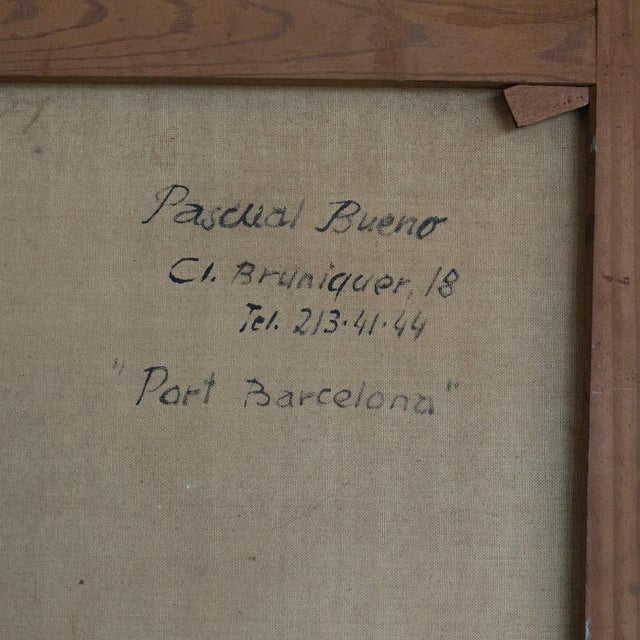 Pascual Bueno
Cl. Bruniquer, 18
Tel. 213-41-44
"Port Barcelona"